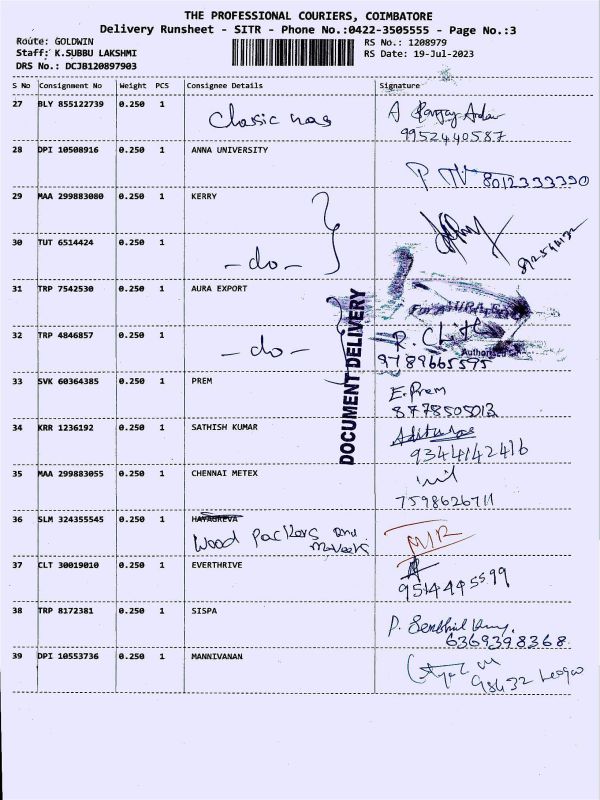 THE PROFESSIONAL COURIERS, COIMBATORE
Delivery Runsheet - SITR - Phone No.:0422-3505555 - Page No.:3
Route: GOLDWIN
Staff: K.SUBBU LAKSHMI
DRS No.: DCJB120897903
RS No.: 1208979
RS Date: 19-Jul-2023
S No Consignment No Weight PCS Consignee Details Signature
27 BLY 855122739 0.250 1 Classic has
9952440587
28 DPI 10508916 0.250 1 ANNA UNIVERSITY
8012333330
29 MAA 299883080 0.250 1 KERRY
30 TUT 6514424 0.250 1 -do-
31 TRP 7542530 0.250 1 AURA EXPORT
For AURA
32 TRP 4846857 0.250 1 -do- R.
9789665595
Authorised
DOCUMENT DELIVERY
33 SVK 60364385 0.250 1 PREM E.Prem
8778505013
34 KRR 1236192 0.250 1 SATHISH KUMAR
9344142416
35 MAA 299883055 0.250 1 CHENNAI METEX
7598626711
36 SLM 324355545 0.250 1 HAYAGREVA
Wood Packers and
Movers
M/R
37 CLT 30019010 0.250 1 EVERTHRIVE
9514495599
38 TRP 8172381 0.250 1 SISPA P.
6369398368
39 DPI 10553736 0.250 1 MANNIVANAN